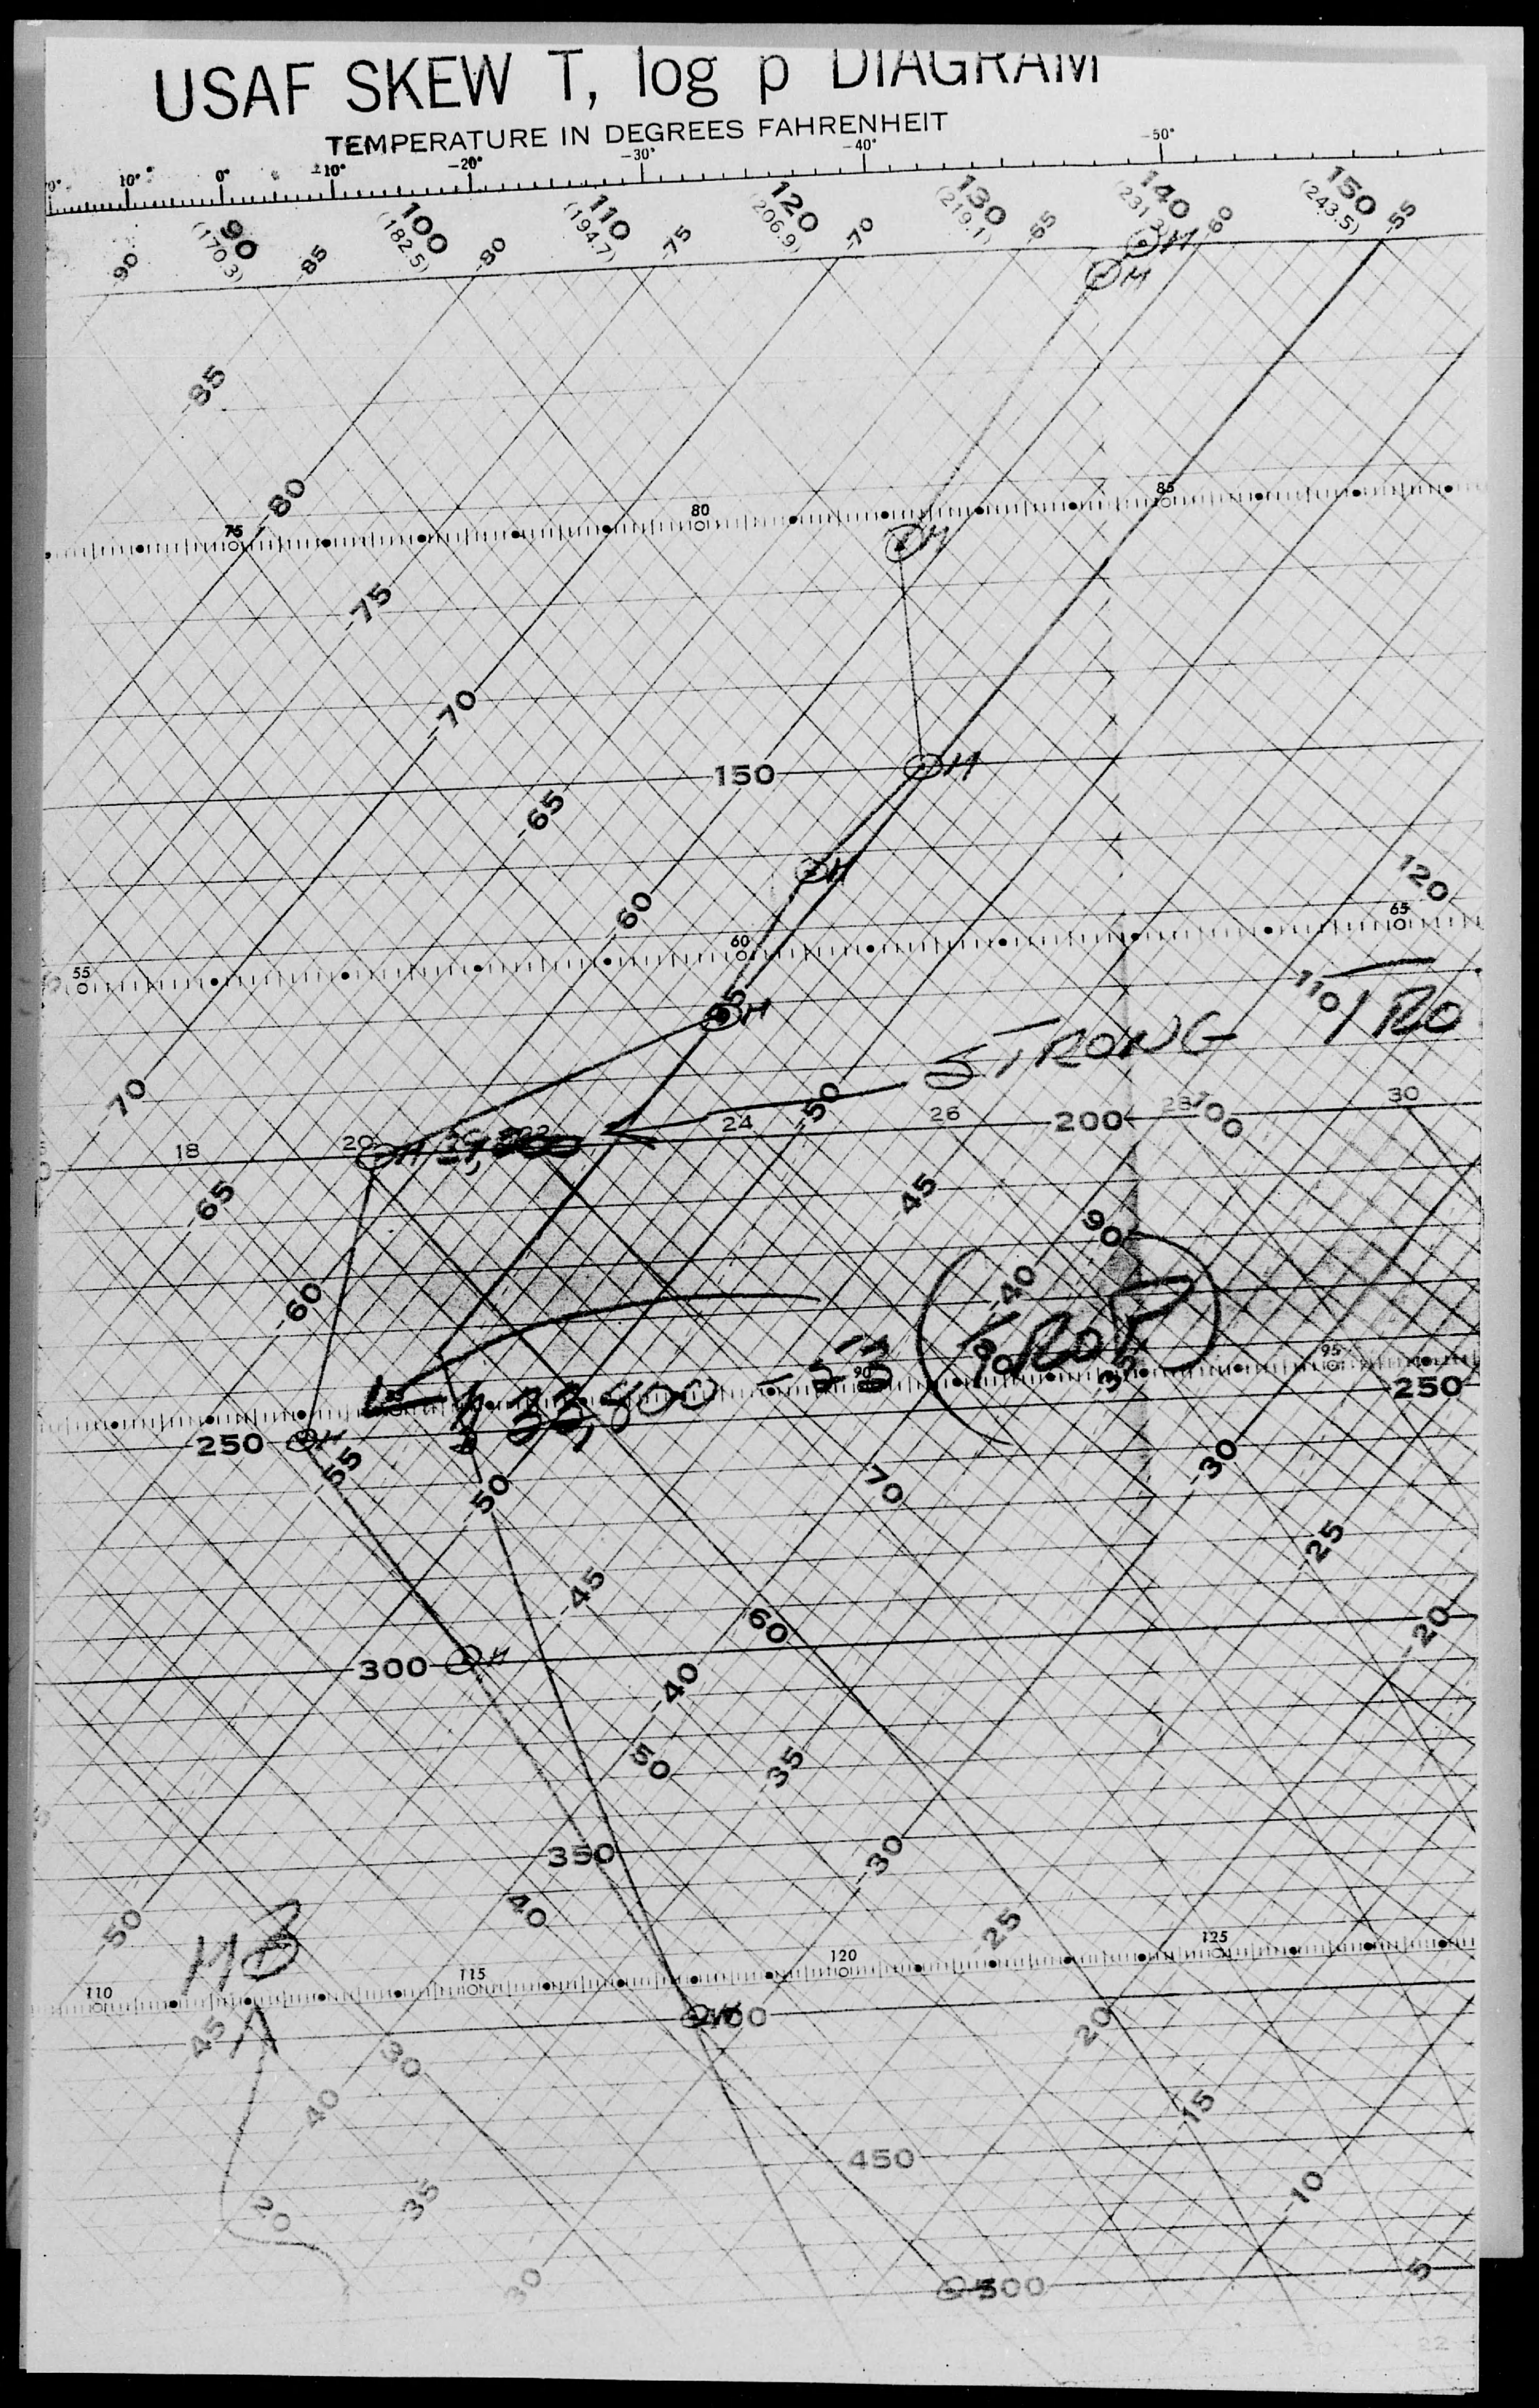 USAF SKEW T, log p DIAGRAM
TEMPERATURE IN DEGREES FAHRENHEIT
10° 0° -10° -20° -30° -40° -50°
90 100 110 120 130 140 150
(170.3) (182.5) (194.7) (206.9) (219.1) (231.3) (243.5)
-90 -85 -80 -75 -70 -65 -60 -55
H
H
-85
-80
75 80 85
H
-75
-70
150 H
-65
H
120
-60
55 60 65
H
110
STRONG TRO
-70
-50
18 20 22 24 26 28 30
200 100
H
-65
-45
90
-60
-40
TROP
33,800 -53
90 95
35
250 H 250
-55
-50
70
-30
-45
-25
60
300 H
-20
-40
50
35
350
-30
40
-50
-25
MB
110 115 120 125
400
45
30
20
40
-15
450
35
-10
20
30
500
5
22